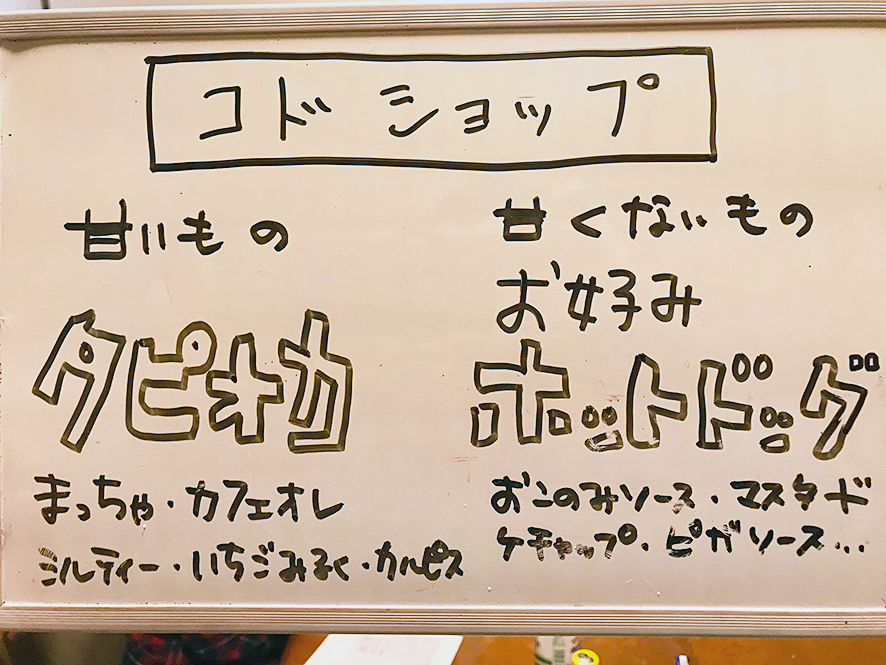 コドショップ
甘いもの
タピオカ
まっちゃ・カフェオレ
ミルティー・いちごみるく・カルピス
甘くないもの
お好み
ホットドッグ
おこのみソース・マスタード
ケチャップ・ピザソース...